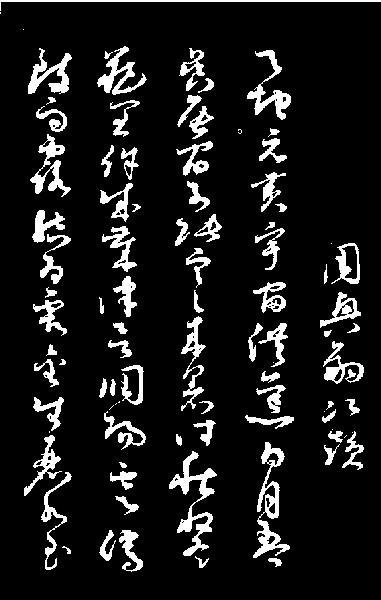 周興嗣次韻
天地元黃宇宙洪荒日月盈
昃辰宿列張寒來暑往秋收冬
藏閏餘成歲律呂調陽雲騰
致雨露結為霜金生麗水玉